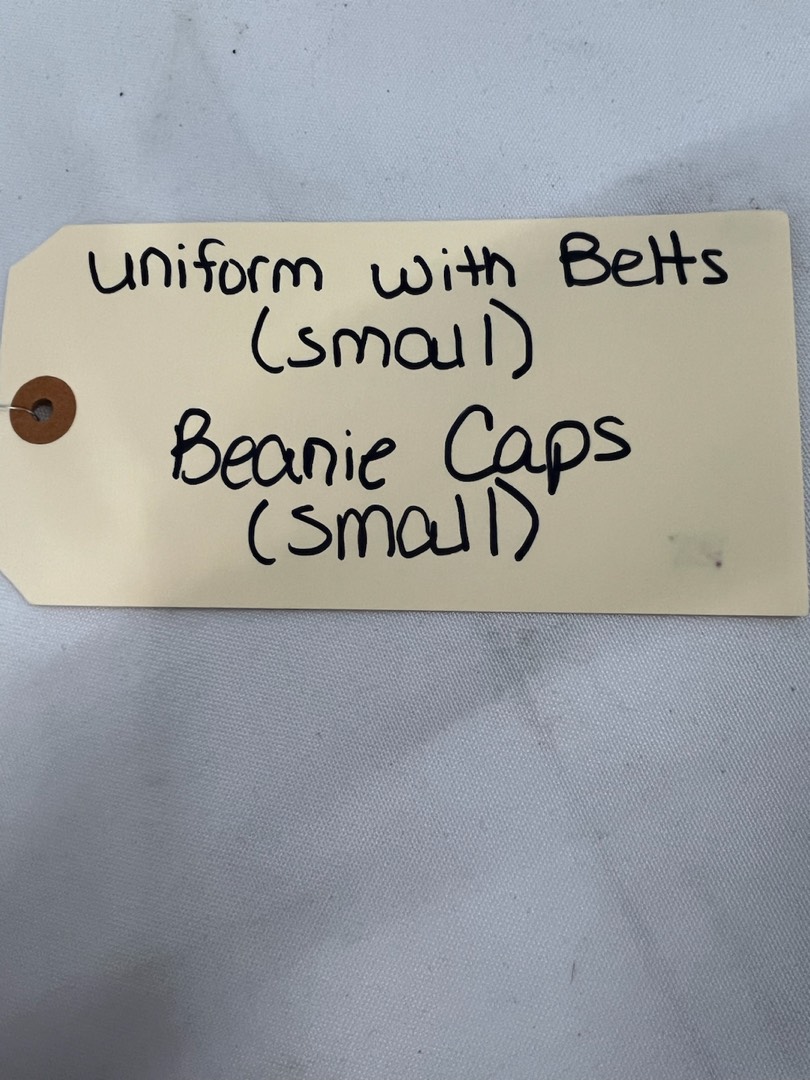 uniform with Belts
(small)
Beanie Caps
(small)